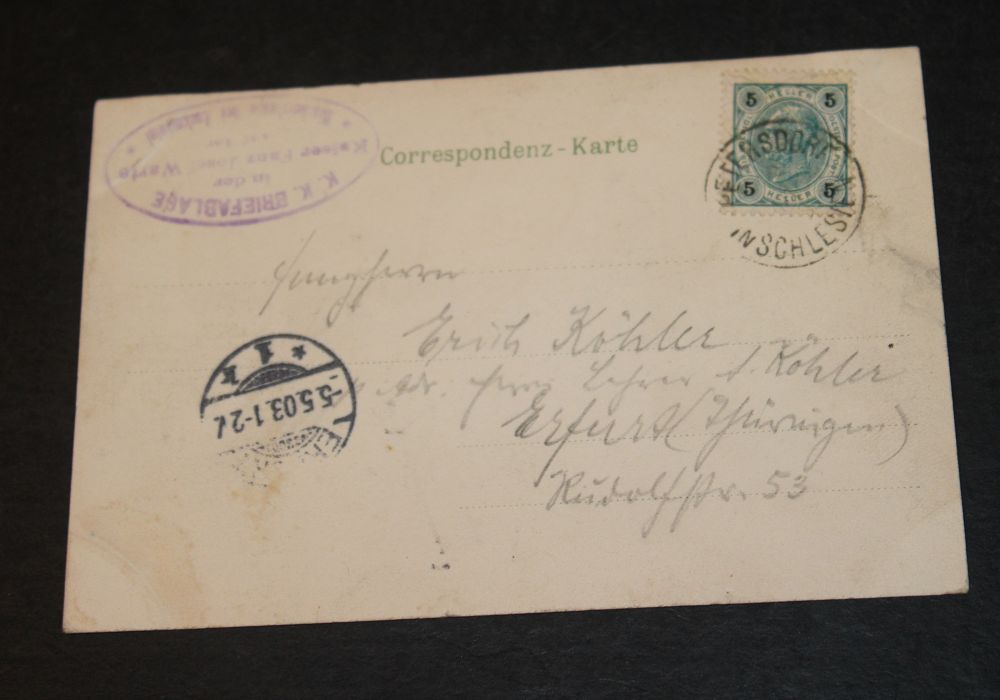 K. K. BRIEFABLAGE
in der
Kaiser Franz Josef Warte
Correspondenz-Karte
5 HELLER 5
5 HELLER 5
PETERSDORF
IN SCHLESIEN
Jungherrn
Erich Köhler
Adr. Herrn Lehrer A. Köhler
Erfurt (Thüringen)
Rudolfstr. 53
1
k
-5.5.03.1-2